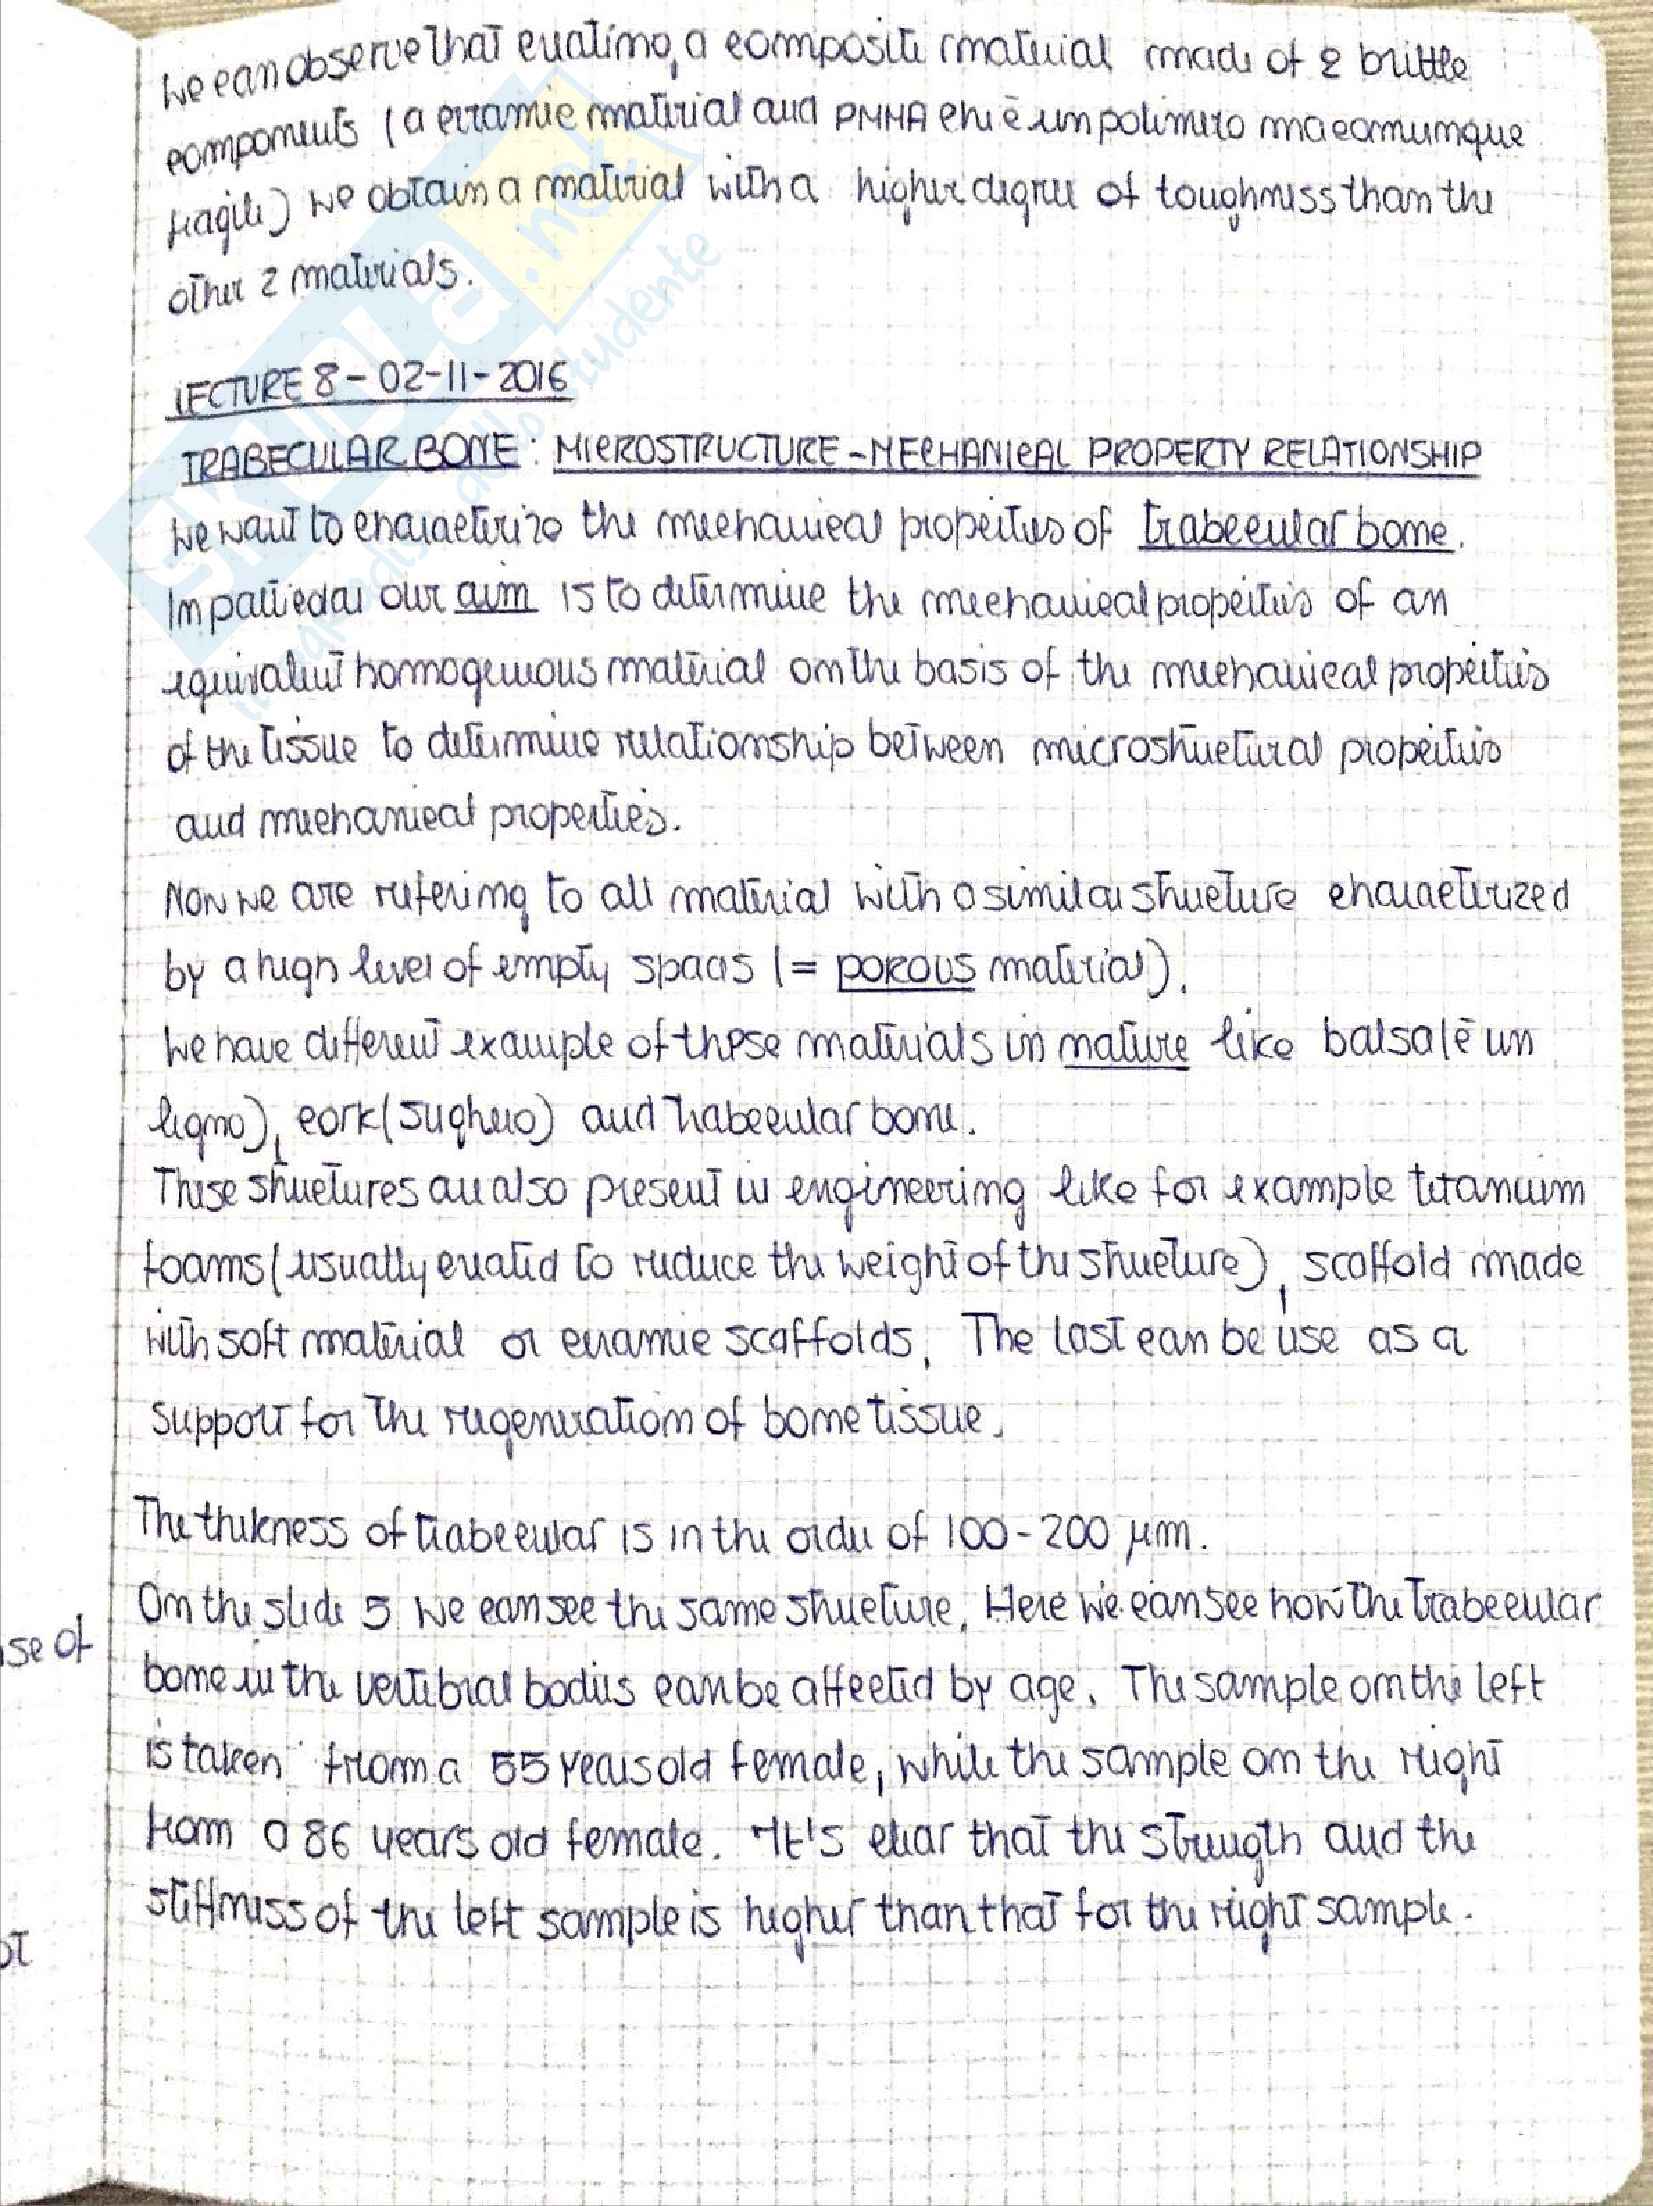 We can observe that creating a composite material made of 2 brittle
components (a ceramic material and PMMA che è un polimero ma comunque
fragile) we obtain a material with a higher degree of toughness than the
other 2 materials.
LECTURE 8 - 02-11-2016
TRABECULAR BONE: MICROSTRUCTURE-MECHANICAL PROPERTY RELATIONSHIP
We want to characterize the mechanical properties of trabecular bone.
In particular our aim is to determine the mechanical properties of an
equivalent homogeneous material on the basis of the mechanical properties
of the tissue to determine relationship between microstructural properties
and mechanical properties.
Now we are refering to all material with a similar structure characterized
by a high level of empty spaces (= POROUS material).
We have different example of these materials in nature like balsa(è un
legno), cork(sughero) and trabecular bone.
These structures are also present in engineering like for example titanium
foams (usually created to reduce the weight of the structure), scaffold made
with soft material or ceramic scaffolds. The last can be use as a
support for the regeneration of bone tissue.
The thikness of trabecular is in the order of 100-200 μm.
On the slide 5 we can see the same structure. Here we can see how the trabecular
se of
bone in the vertebral bodies can be affected by age. The sample on the left
is taken from a 55 years old female, while the sample on the right
from a 86 years old female. It's clear that the strength and the
stiffness of the left sample is higher than that for the right sample.
ot
SKUOLA.net